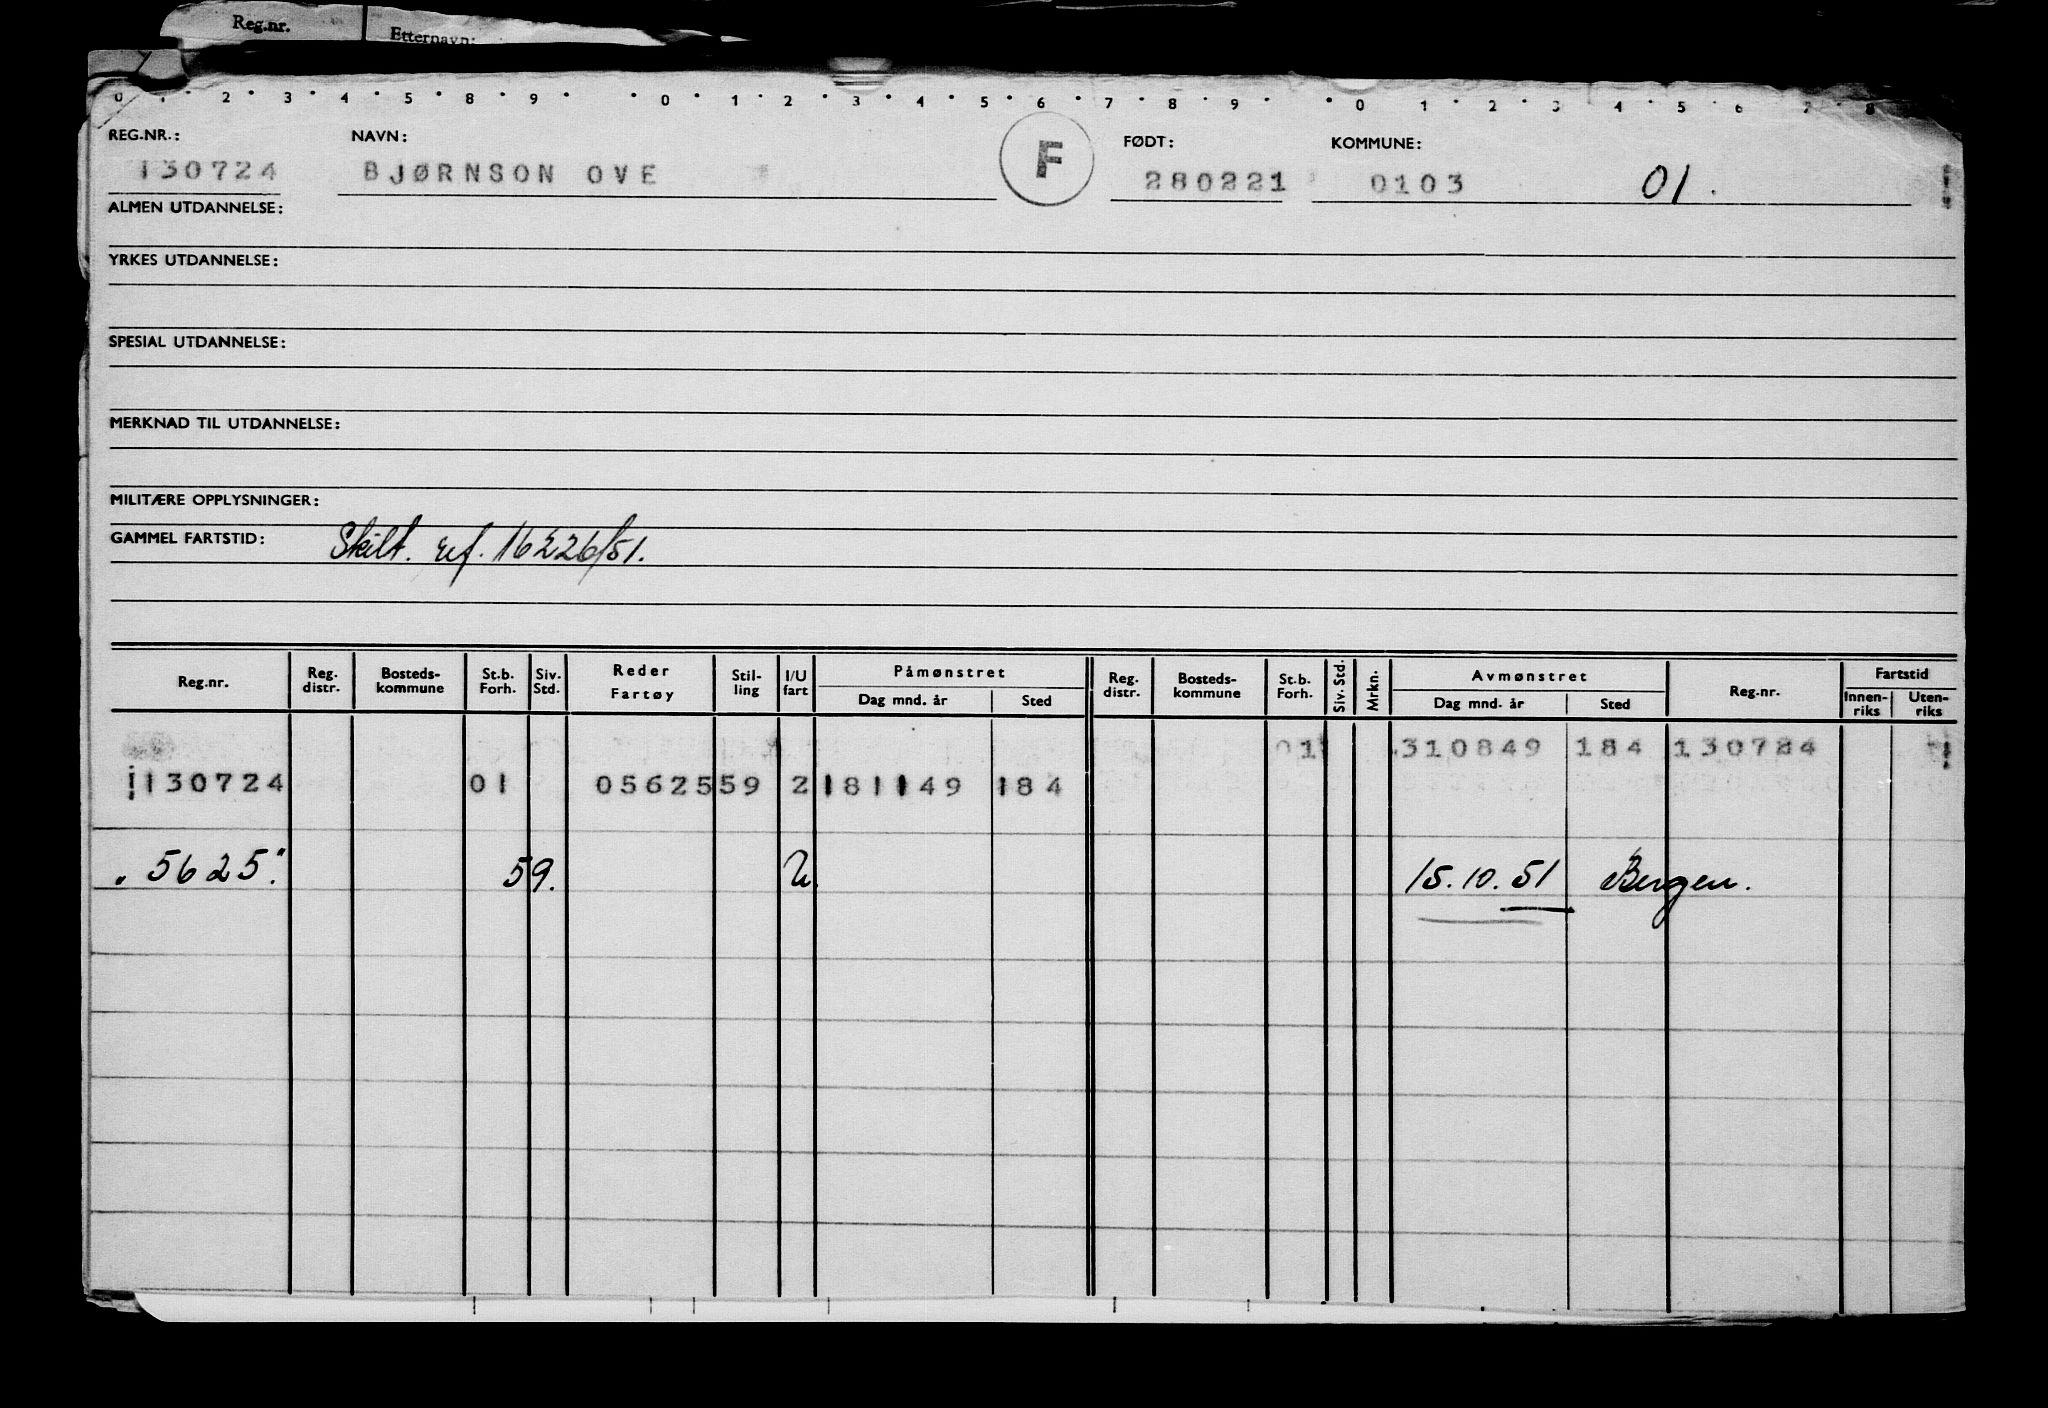 Reg.nr. Etternavn:
0 1 2 3 4 5 8 9 0 1 2 3 4 5 6 7 8 9 0 1 2 3 4 5 6 7 8
REG.NR.: NAVN: F FØDT: KOMMUNE:
130724 BJØRNSON OVE 280221 0103 01.
ALMEN UTDANNELSE:
YRKES UTDANNELSE:
SPESIAL UTDANNELSE:
MERKNAD TIL UTDANNELSE:
MILITÆRE OPPLYSNINGER:
GAMMEL FARTSTID: Skilt. ref. 16226/51.
Reg.nr. Reg. distr. Bosteds-kommune St.b. Forh. Siv. Std. Reder Fartøy Stil-ling I/U fart Påmønstret Dag mnd. år Sted Reg. distr. Bosteds-kommune St.b. Forh. Siv. Std. Mrkn. Avmønstret Dag mnd. år Sted Reg.nr. Fartstid Innen-riks Uten-riks
01 310849 184 130724
130724 01 0562559 2 181149 184
"5625". 59. U 15.10.51 Bergen.